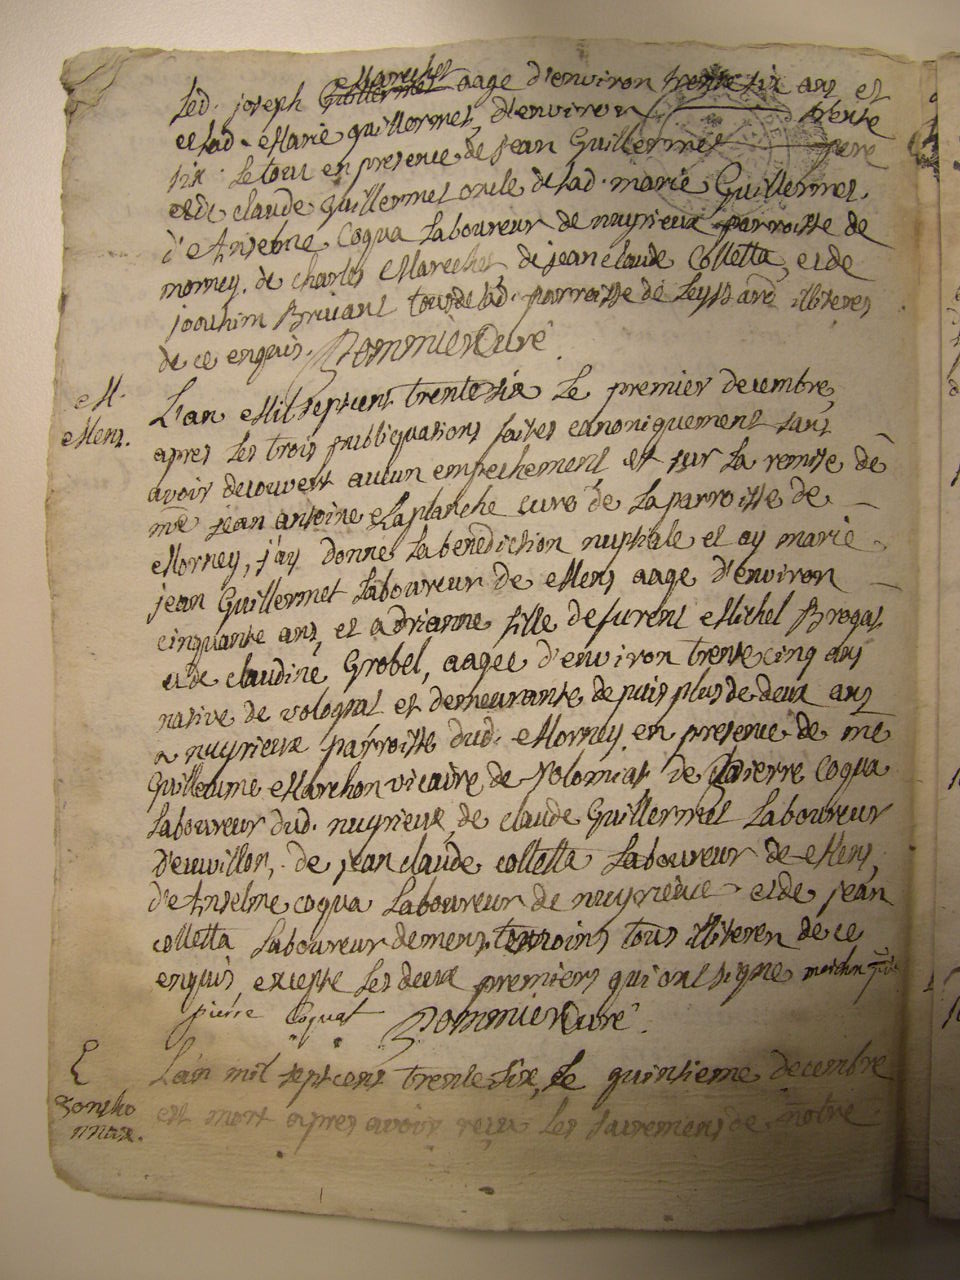 Led. joseph Guillermet Marechet aagé d'environ trente six ans et
et lad. Marie guillermet, d'environ trente
six. Le tout en presence de Jean Guillermet pere
et de claude guillermet oncle de lad. marie Guillermet,
d'Anselme Coqua Laboureur de nuyrieux parroisse de
morney, de charles Marechet, de jean claude Colletta, et de
joachim Bruiant tous de lad. parroisse de Leyssard illiteres
de ce enquis. Pommier Curé
M.
Mens.
L'an Mil sept cent trente six Le premier decembre,
apres Les trois publiquations faites canoniquement sans
avoir decouvert aucun empechement, et sur La remise de
mre jean antoine Laplanche curé de La parroisse de
Morney, j'ay donné La benediction nuptiale et ay marié
jean Guillermet Laboureur de Mens aagé d'environ
cinquante ans, et adrianne fille de furent Michel Brogat
et de claudine Grobel, aagée d'environ trente cinq ans
native de volognat et demeurante depuis plus de deux ans
a nuyrieux parroisse dud. Morney, en presence de mre
Guilleaume Marchon vicaire de Solomiat de Pierre Coqua
Laboureur dud. nuyrieux, de claude Guillermet Laboureur
d'euvillon, de jean claude colletta Laboureur de Mens,
d'Anselme coqua Laboureur de nuyrieux et de jean
colletta Laboureur de mens, temoins tous illiteren de ce
enquis, excepté Les deux premiers qui ont signé
pierre Coquat Pommier Curé.
L'an mil sept cent trente six, Le quinsieme decembre
est mort apres avoir reçu Les sacremens de notre